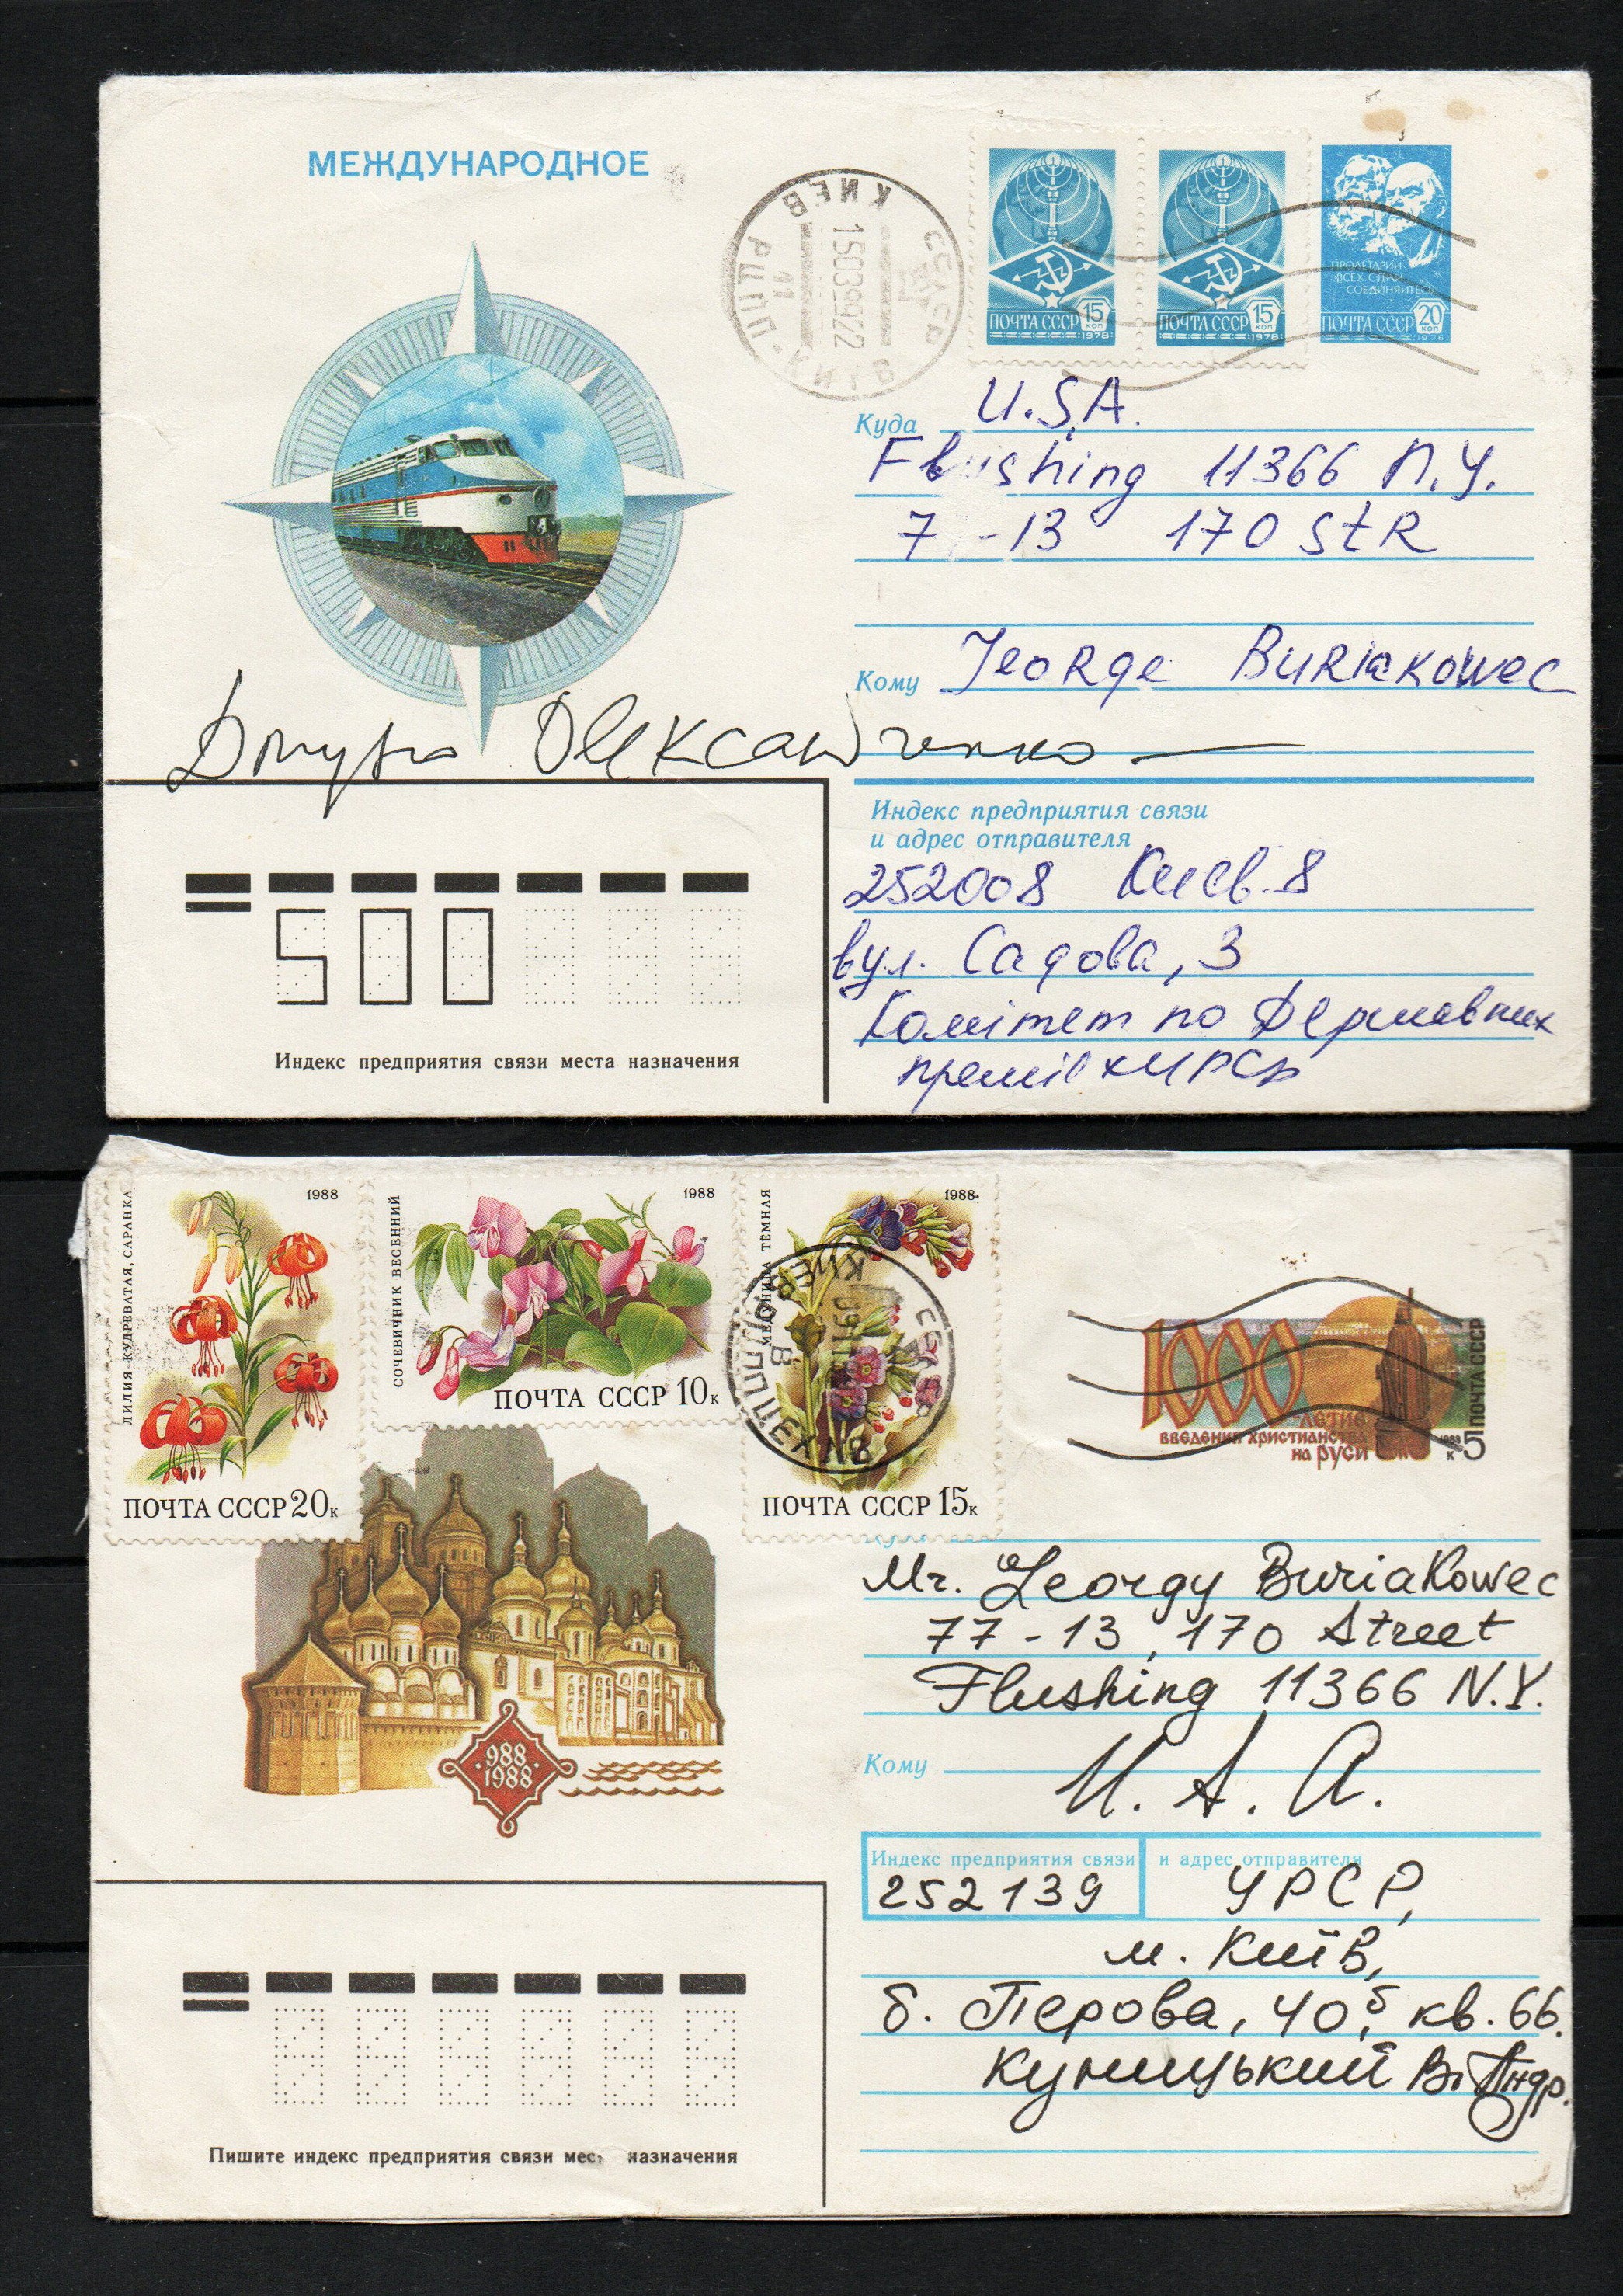 МЕЖДУНАРОДНОЕ
КИЕВ
РЦПП-
15
коп
ПОЧТА СССР
1978
15
коп
ПОЧТА СССР
1978
ПРОЛЕТАРИИ
ВСЕХ СТРАН
СОЕДИНЯЙТЕСЬ
20
коп
ПОЧТА СССР
1976
Куда U.S.A.
Flushing 11366 N.Y.
7 -13 170 StR
Кому George Buriakowec
Дмутро Олександренко
Индекс предприятия связи
и адрес отправителя
252008 Киев. 8
вул. Садова, 3
Комітет по Державних
премія УРСР
500
Индекс предприятия связи места назначения
ЛИЛИЯ КУДРЕВАТАЯ, САРАНКА
1988
ПОЧТА СССР 20к
СОЧЕВИЧНИК ВЕСЕННИЙ
1988
ПОЧТА СССР 10к
МЕДУНИЦА ТЕМНАЯ
1988
ПОЧТА СССР 15к
КИЕВ
1000
-ЛЕТИЕ
ВВЕДЕНИЯ ХРИСТИАНСТВА
НА РУСИ
1988
5к
ПОЧТА СССР
Mr. Georgy Buriakowec
77-13, 170 Street
Flushing 11366 N.Y.
Кому U. S. A.
988
1988
Индекс предприятия связи и адрес отправителя
252139 УРСР,
м. Київ,
б. Перова, 40б, кв. 66.
Куницький Ві Андр.
Пишите индекс предприятия связи места назначения